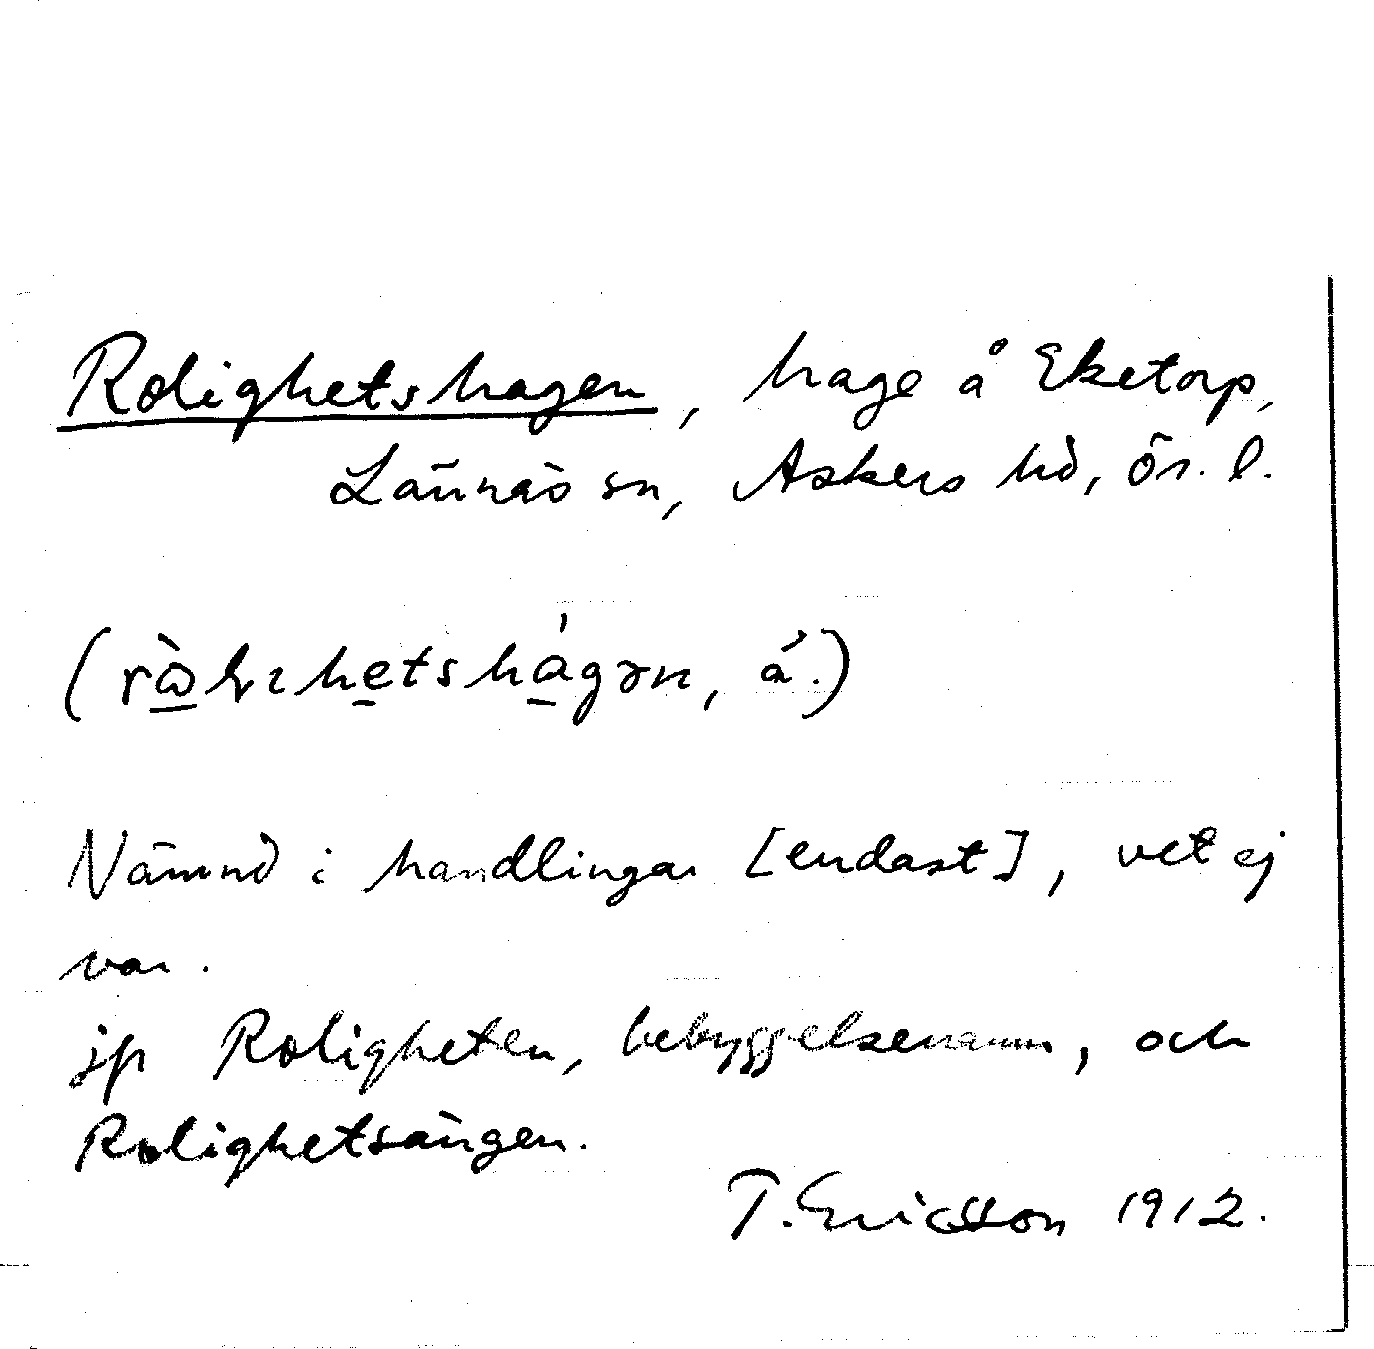 Rolighetshagen, hage å Eketorp,
Lännäs sn, Askers hd, ör. l.
Nämnd i handlingar [endast], vet ej
var.
jfr Roligheten, bebyggelsenamn, och
Rolighetsängen.
T. Ericsson 1912.